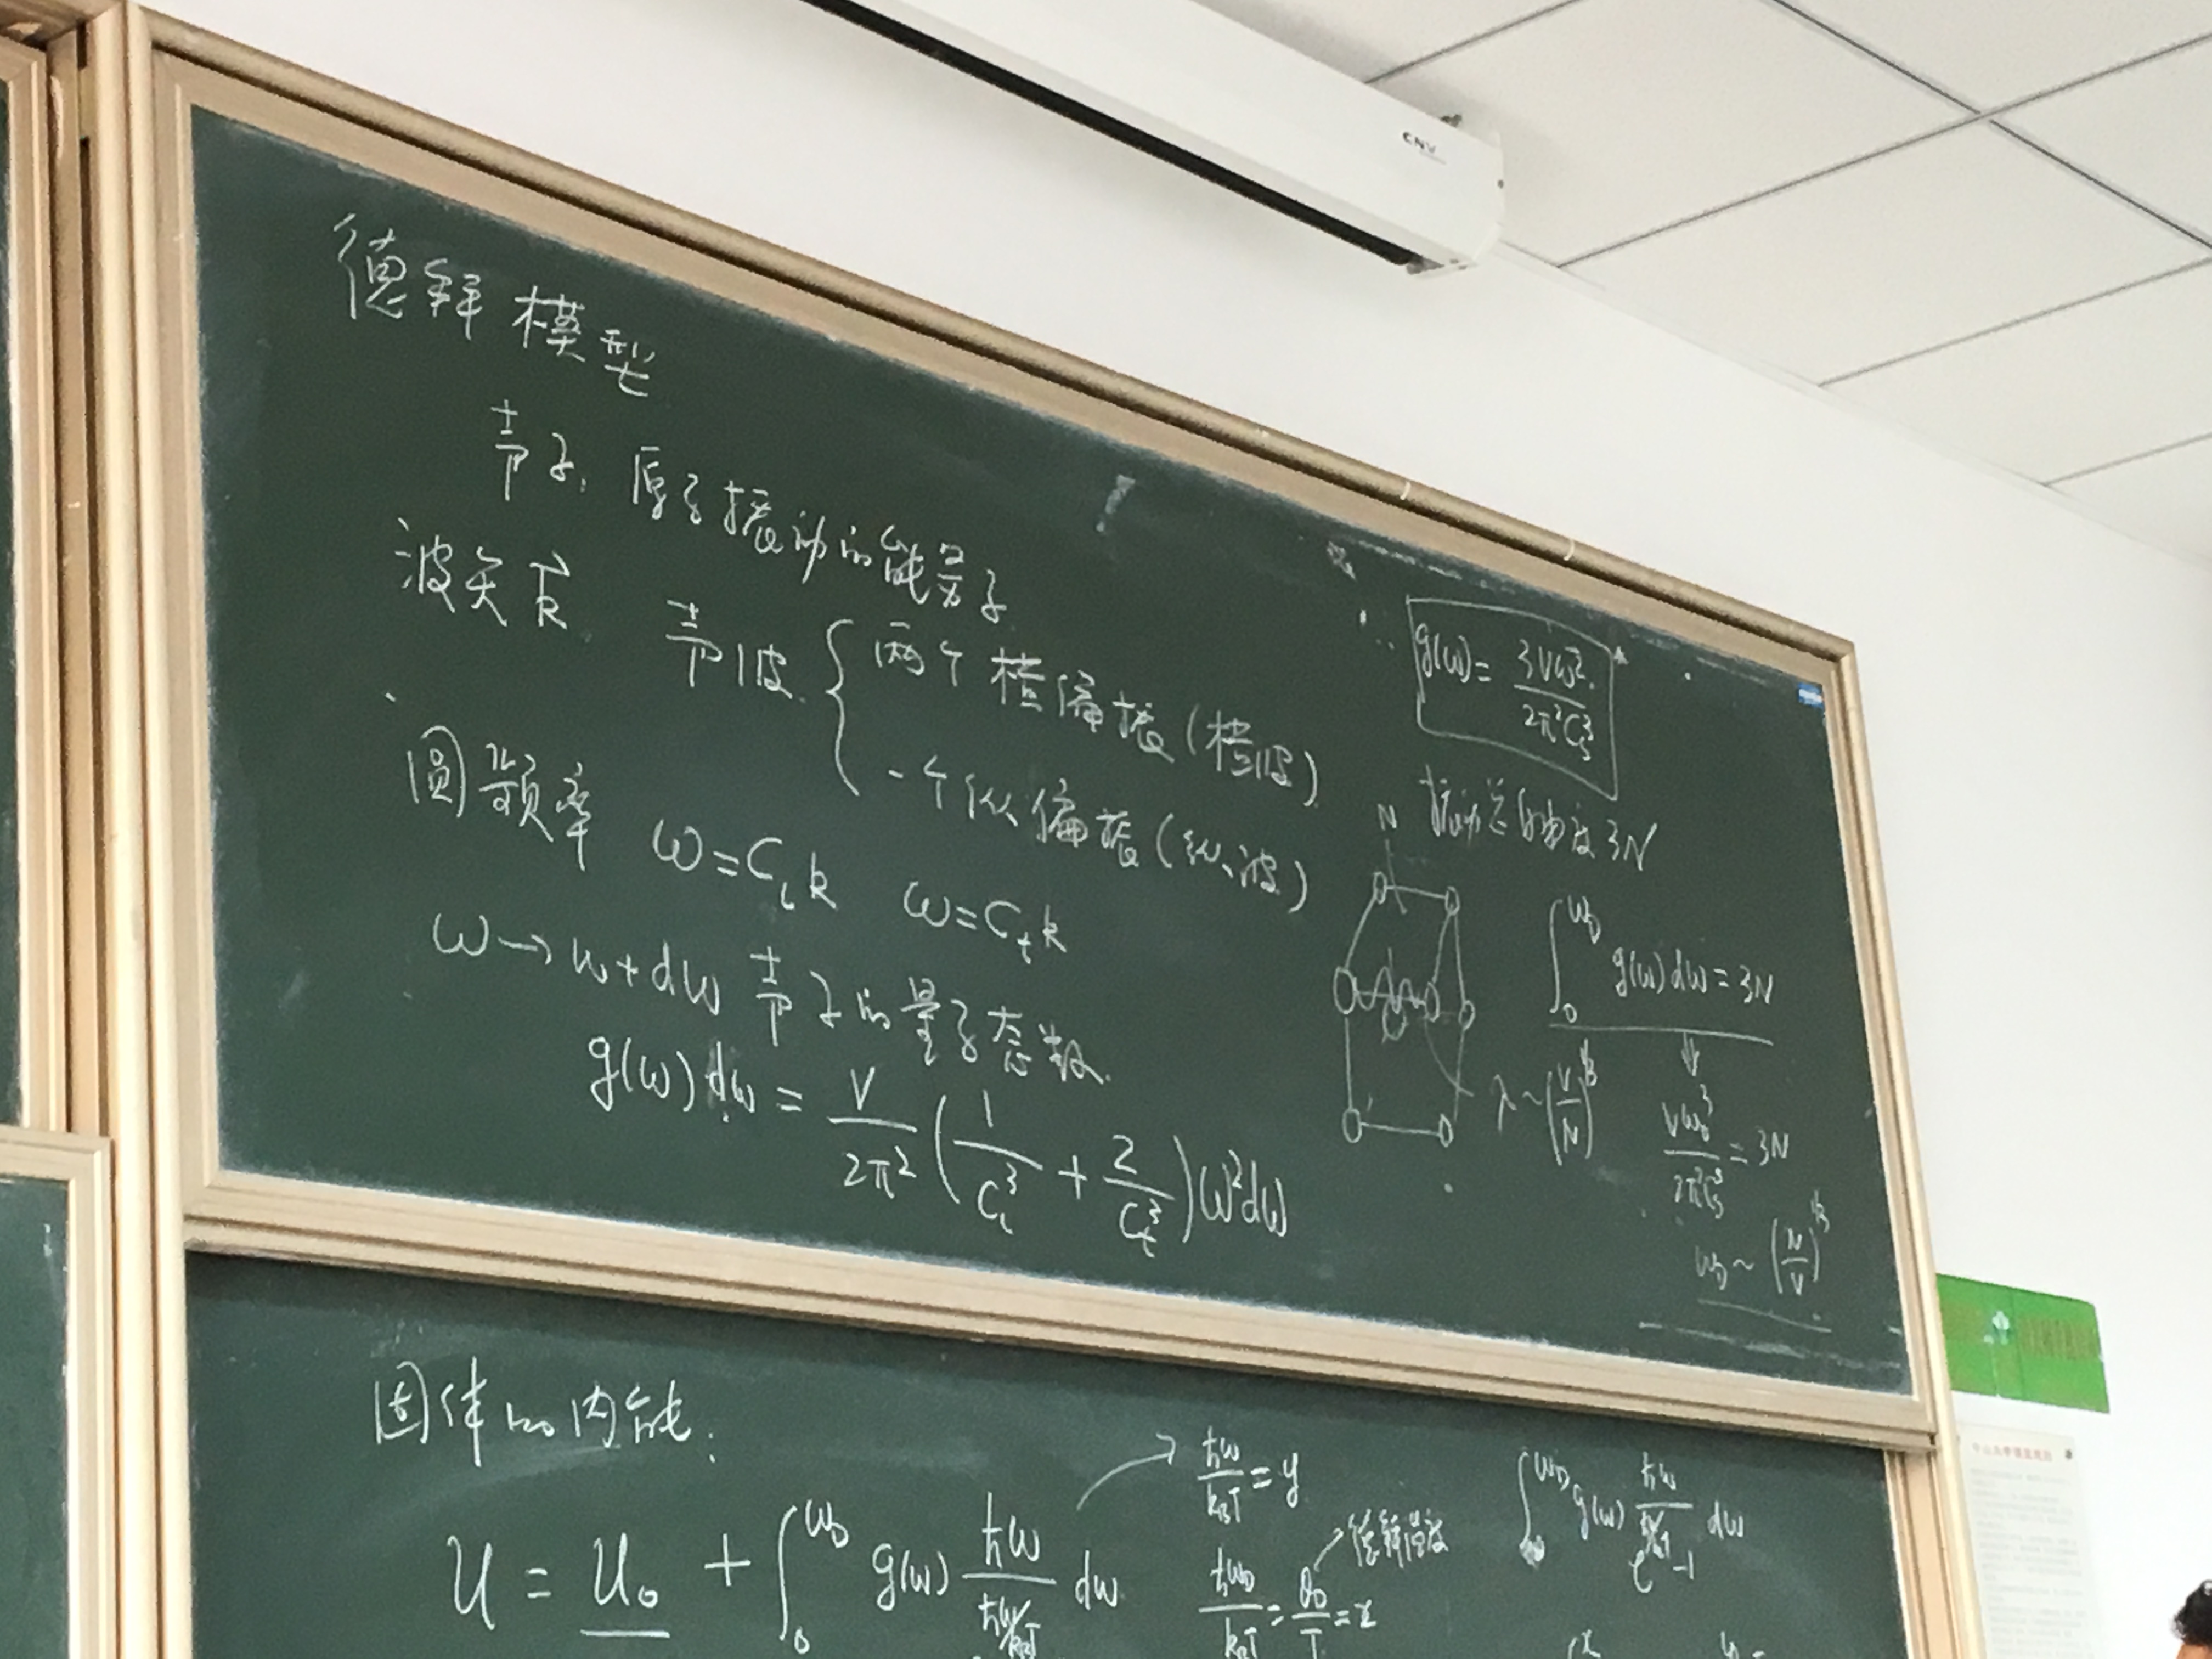 CNV
德拜模型
声子, 原子振动的能量子
波矢 k⃗ 声波 { 两个横偏振(横波)
一个纵偏振(纵波)
圆频率 ω=C_l k ω=C_t k
ω→ω+dω 声子的量子态数.
g(ω)dω = V/2π² (1/C_l³ + 2/C_t³)ω²dω
g(ω)= 3Vω²/2π²C_s³
振动总自由度3N
N
∫₀^ω_D g(ω)dω=3N
λ~(V/N)^⅓
Vω_D³/2π²C_s³=3N
ω_D~(N/V)^⅓
固体的内能:
U = U₀ + ∫₀^ω_D g(ω) ħω/
dω
ħω/k_BT=y
ħω_D/k_BT=θ_D/T=x
德拜温度
∫₀^ω_D g(ω) ħω/(e^(ħω/k_BT)-1) dω